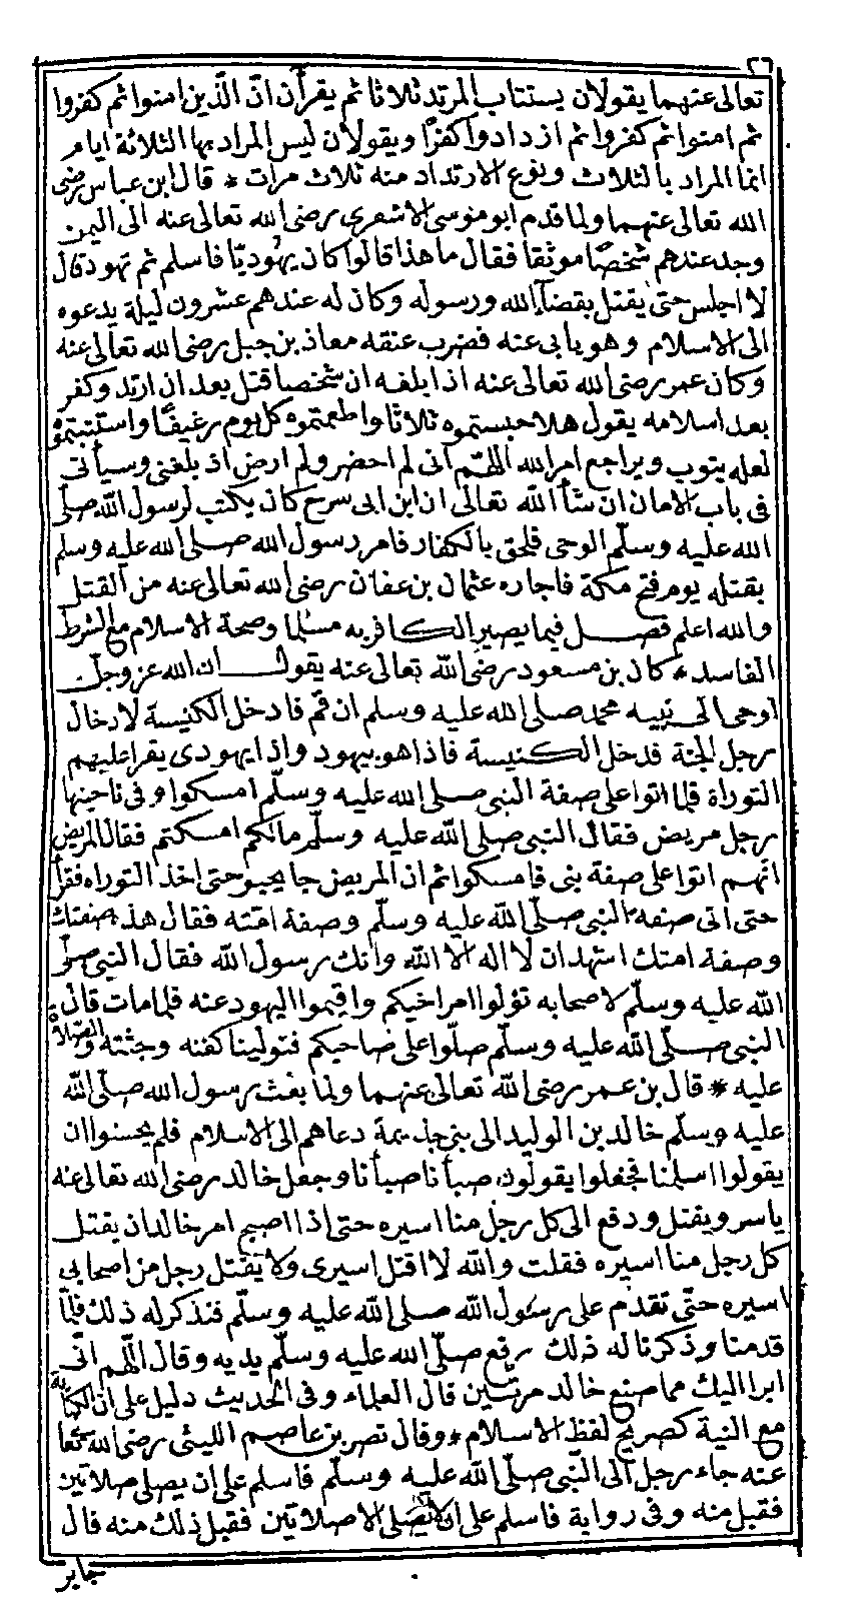 ٢٦
تعالى عنهما يقولان يستتاب المرتد ثلاثا ثم يقرأن انّ الّذين امنوا ثم كفروا
ثم امنوا ثم كفروا ثم ازدادوا كفرًا ويقولان ليس المراد بها الثلاثة ايام
انما المراد بالثلاث وقوع الارتداد منه ثلاث مرات * قال ابن عباس رضى
الله تعالى عنهما ولما قدم ابو موسى الاشعرى رضى الله تعالى عنه الى اليمن
وجد عندهم شخصًا موثقا فقال ما هذا قالوا كان يهوديّا فاسلم ثم تهود قال
لا اجلس حتى يقتل بقضآء الله ورسوله وكان له عندهم عشرون ليلة يدعوه
الى الاسلام وهو يابى عنه فضرب عنقه معاذ بن جبل رضى الله تعالى عنه
وكان عمر رضى الله تعالى عنه اذا بلغه ان شخصا قتل بعد ان ارتد وكفر
بعد اسلامه يقول هلا حبستموه ثلاثا واطعمتموه كل يوم رغيفًا واستتبتموه
لعله يتوب ويراجع امر الله اللهّم انى لم احضر ولم ارض اذ بلغنى وسيأتى
فى باب الامان ان شأ الله تعالى ان ابن ابى سرح كان يكتب لرسول الله صلّى
الله عليه وسلّم الوحى فلحق بالكفار فامر رسول الله صلى الله عليه وسلم
بقتله يوم فتح مكة فاجاره عثمان بن عفان رضى الله تعالى عنه من القتل
والله اعلم فصل فيما يصير الكافر به مسلما وصحة الاسلام مع الشرط
الفاسد * كان بن مسعود رضى الله تعالى عنه يقول ان الله عز وجل
اوحى الى نبيه محمد صلى الله عليه وسلم ان قم فادخل الكنيسة لادخال
رجل الجنة فدخل الكنيسة فاذا هو بيهود واذا يهودى يقرا عليهم
التوراة فلما اتوا على صفة النبى صلى الله عليه وسلّم امسكوا وفى ناحيتها
رجل مريض فقال النبى صلى الله عليه وسلّم مالكم امسكتم فقال المريض
انهم اتوا على صفة نبى فامسكوا ثم ان المريض جا يحبو حتى اخذ التوراه فقرأ
حتى اتى صفه النبى صلّى الله عليه وسلّم وصفة امّته فقال هذه صفتك
وصفة امتك اشهد ان لا اله الا الله وانك رسول الله فقال النبى صلّى
الله عليه وسلّم لاصحابه تولوا امر اخيكم واقيموا اليهود عنه فلما مات قال
النبى صلّى الله عليه وسلّم صلّوا على صاحبكم فتولينا كفنه وجثته والصلاة
عليه * قال بن عمر رضى الله تعالى عنهما ولما بعث رسول الله صلّى الله
عليه وسلّم خالد بن الوليد الى بنى جذيمة دعاهم الى الاسلام فلم يحسنوا ان
يقولوا اسلمنا فجعلوا يقولون صبأنا صبأنا وجعل خالد رضى الله تعالى عنه
ياسر ويقتل ودفع الى كل رجل منا اسيره حتى اذا اصبح امر خالد ان يقتل
كل رجل منا اسيره فقلت والله لا اقتل اسيرى ولا يقتل رجل من اصحابى
اسيره حتّى تقدم على رسول الله صلى الله عليه وسلّم فنذكر له ذلك فلمّا
قدمنا وذكرنا له ذلك رفع صلّى الله عليه وسلّم يديه وقال اللّهم انّى
ابرا اليك مما صنع خالد مرتين قال العلماء وفى الحديث دليل على ان الكناية
مع النية كصريح لفظ الاسلام * وقال نصر بن عاصم الليثى رضى الله تعا
عنه جاء رجل الى النّبى صلّى الله عليه وسلّم فاسلم على ان يصلى صلاتين
فقبل منه وفى رواية فاسلم على ان لا يصلى الا صلاتين فقبل ذلك منه قال
جابر